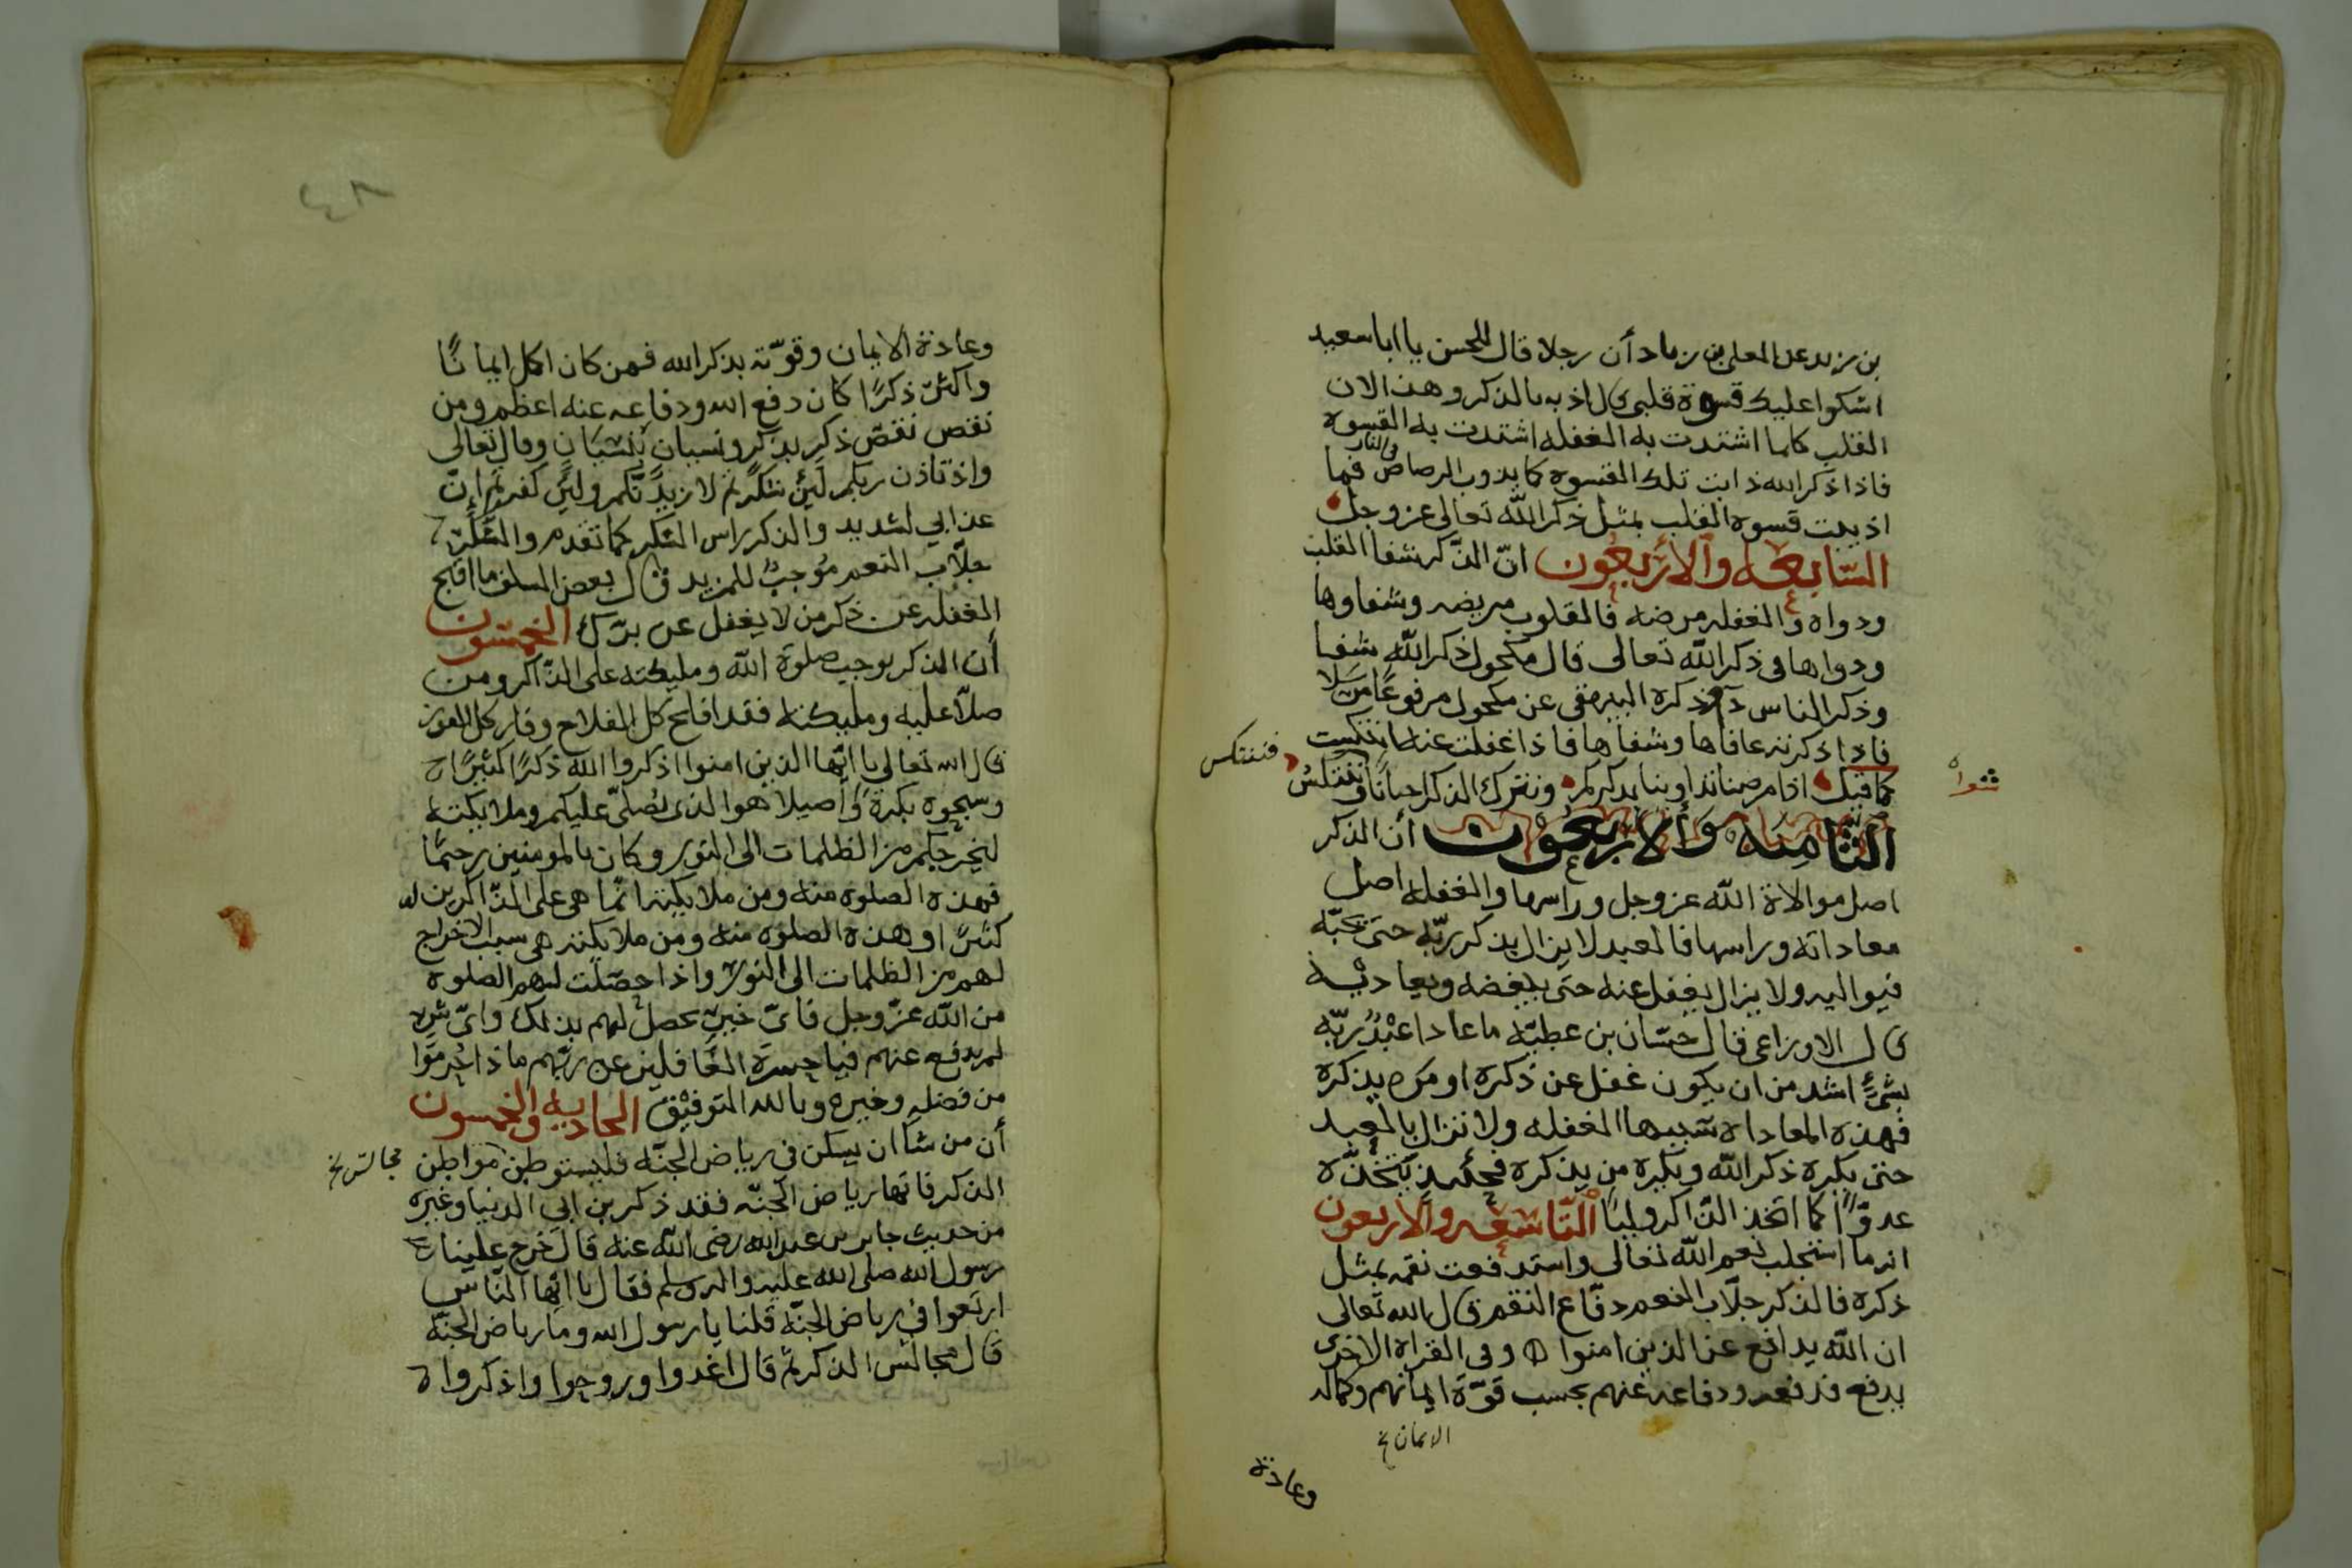 بن زيد عن المعلى بن زياد أن رجلا قال للحسن يا ابا سعيد
اشكوا عليك قسوة قلبى قال اذبه بالذكر وهذا لان
القلب كلما اشتدت به الغفله اشتدت به القسوه
فاذا ذكر الله ذابت تلك القسوه كما يذوب الرصاص في النار فما
اذيبت قسوه القلب بمثل ذكر الله تعالى عز وجل
السّابعه والأربعون انّ الذّكر شفا القلب
ودواه والغفله مرضه فالقلوب مريضه وشفاوها
ودواها فى ذكر الله تعالى قال مكحول ذكر الله شفا
وذكر الناس دآ وذكره البيهقى عن مكحول مرفوعًا مرسَلا
فاذا ذكرته عافاها وشفاها فاذا غفلت عنه انتكست
فتنتكس
شعرا
كما قيل اذا مرضنا تداوينا بذكركم ونترك الذكر احيانًا فننتكسُ
الثّامنه والأربعون أن الذكر
اصل موالاة الله عز وجل وراسها والغفله اصل
معاداته وراسها فالعبد لا يزال يذكر ربّه حتى يحبّه
فيواليه ولا يزال يغفل عنه حتى يبغضه ويعاديه
قال الاوزاعى قال حسّان بن عطيّه ما عادا عبْدٌ ربّه
بشئٍ اشد من ان يكون غفل عن ذكره او من يذكره
فهذه المعاداه سببها الغفله ولا تزال بالعبد
حتى يكره ذكر الله ويكره من يذكره فحينئذ يتّخذه
عدوًّا كما اتخذ الذّاكر وليًا التّاسعه والاربعون
انه ما استجلب نعم الله تعالى واستدفعت نقمه بمثل
ذكره فالذكر جلّاب النعم دفّاع النقم قال الله تعالى
ان الله يدافع عن الذين امنوا وفى القراة الاخرى
يدفع فدفعه ودفاعه عنهم بحسب قوّة ايمانهم وكماله
الايمان خ
وعادة
٤٨
وعادة الايمان وقوّته بذكر الله فمن كان اكمل ايمانًا
واكثر ذكرًا كان دفع الله ودفاعه عنه اعظم ومن
نقص نقص ذكر بذكر ونسيان بنسيَان وقال تعالى
واذ تاذن ربكم لئن شكرتم لازيدنّكم ولئن كفرتم انّ
عذابي لشديد والذكر راس الشكر كما تقدم والشكر
جلّاب النعم مُوجبٌ للمزيد قال بعض السلف ما اقبح
الغفله عن ذكر من لا يغفل عن برّك الخمسون
أن الذكر يوجب صلوة الله ومليكته على الذّاكر ومن
صلّا عليه ومليكته فقد افلح كل الفلاح وفاز كل الفوز
قال الله تعالى يا ايّها الذين امنوا اذكروا الله ذكرًا كثيرًا
وسبحوه بكرةً وأصيلا هو الذى يُصلّى عليكم وملايكته
ليخرجكم من الظلمات الى النور وكان بالمومنين رحيمًا
فهذه الصلوه منه ومن ملايكته انّما هى على الذّاكرين له
كثيرًا وهذه الصلوه منه ومن ملايكته هى سبب الاخراج
لهم من الظلمات الى النور واذا حصَلت لهم الصلوه
من الله عزّ وجل فاىّ خير لم يحصل لهم بذلك واىّ شر
لم يدفع عنهم فيا حسرة الغافلين عن ربّهم ماذا حُرموا
من فضله وخيره وبالله التوفيق الحاديه والخمسون
أن من شا ان يسكن فى رياض الجنّه فليستوطن مواطن
مجالس خ
الذكر فانها رياض الجنّه فقد ذكر بن ابى الدنيا وغيره
من حديث جابر بن عبد الله رضى الله عنه قال خرج علينا
رسول الله صلى الله عليه واله وسلم فقال يا ايّها النّاس
ارتعوا فى رياض الجنّه قلنا يا رسول الله وما رياض الجنّه
قال مجالس الذكر ثم قال اغدوا وروحوا واذكروا